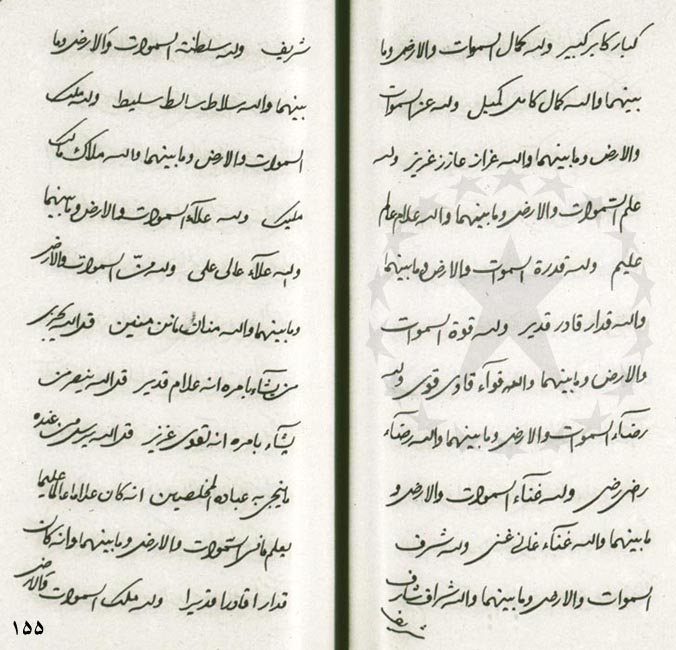 كبار كابر كبير ولله كمال السموات والارض وما
بينهما والله كمال كامل كميل ولله عز السموات
والارض وما بينهما والله عزاز عازز عزيز ولله
علم السموات والارض وما بينهما والله علام عالم
عليم ولله قدرة السموات والارض وما بينهما
والله قدار قادر قدير ولله قوة السموات
والارض وما بينهما والله قوآء قاوى قوى ولله
رضآء السموات والارض وما بينهما والله رضآء
رضى ولله غنآء السموات والارض و
ما بينهما والله غنآء غانى غنى ولله شرف
السموات والارض وما بينهما والله شراف شارف
شريف
شريف ولله سلطنة السموات والارض وما
بينهما والله سلاط سالط سليط ولله ملك
السموات والارض وما بينهما والله ملاك مالك
مليك ولله علآء السموات والارض وما بينهما
والله علآء عالى على ولله منّ السموات والارض
وما بينهما والله منان مانن منين قل الله يجزى
من يشآء بامره انه علام قدير قل الله ينصر من
يشآء بامره انه لقوى عزيز قل الله يرسل من عنده
ما ينجى به عباده المخلصين انه كان علاما عالما عليما
يعلم ما فى السموات والارض وما بينهما وانه كان
قدارا قادرا قديرا ولله ملك السموات والارض
۱۵۵